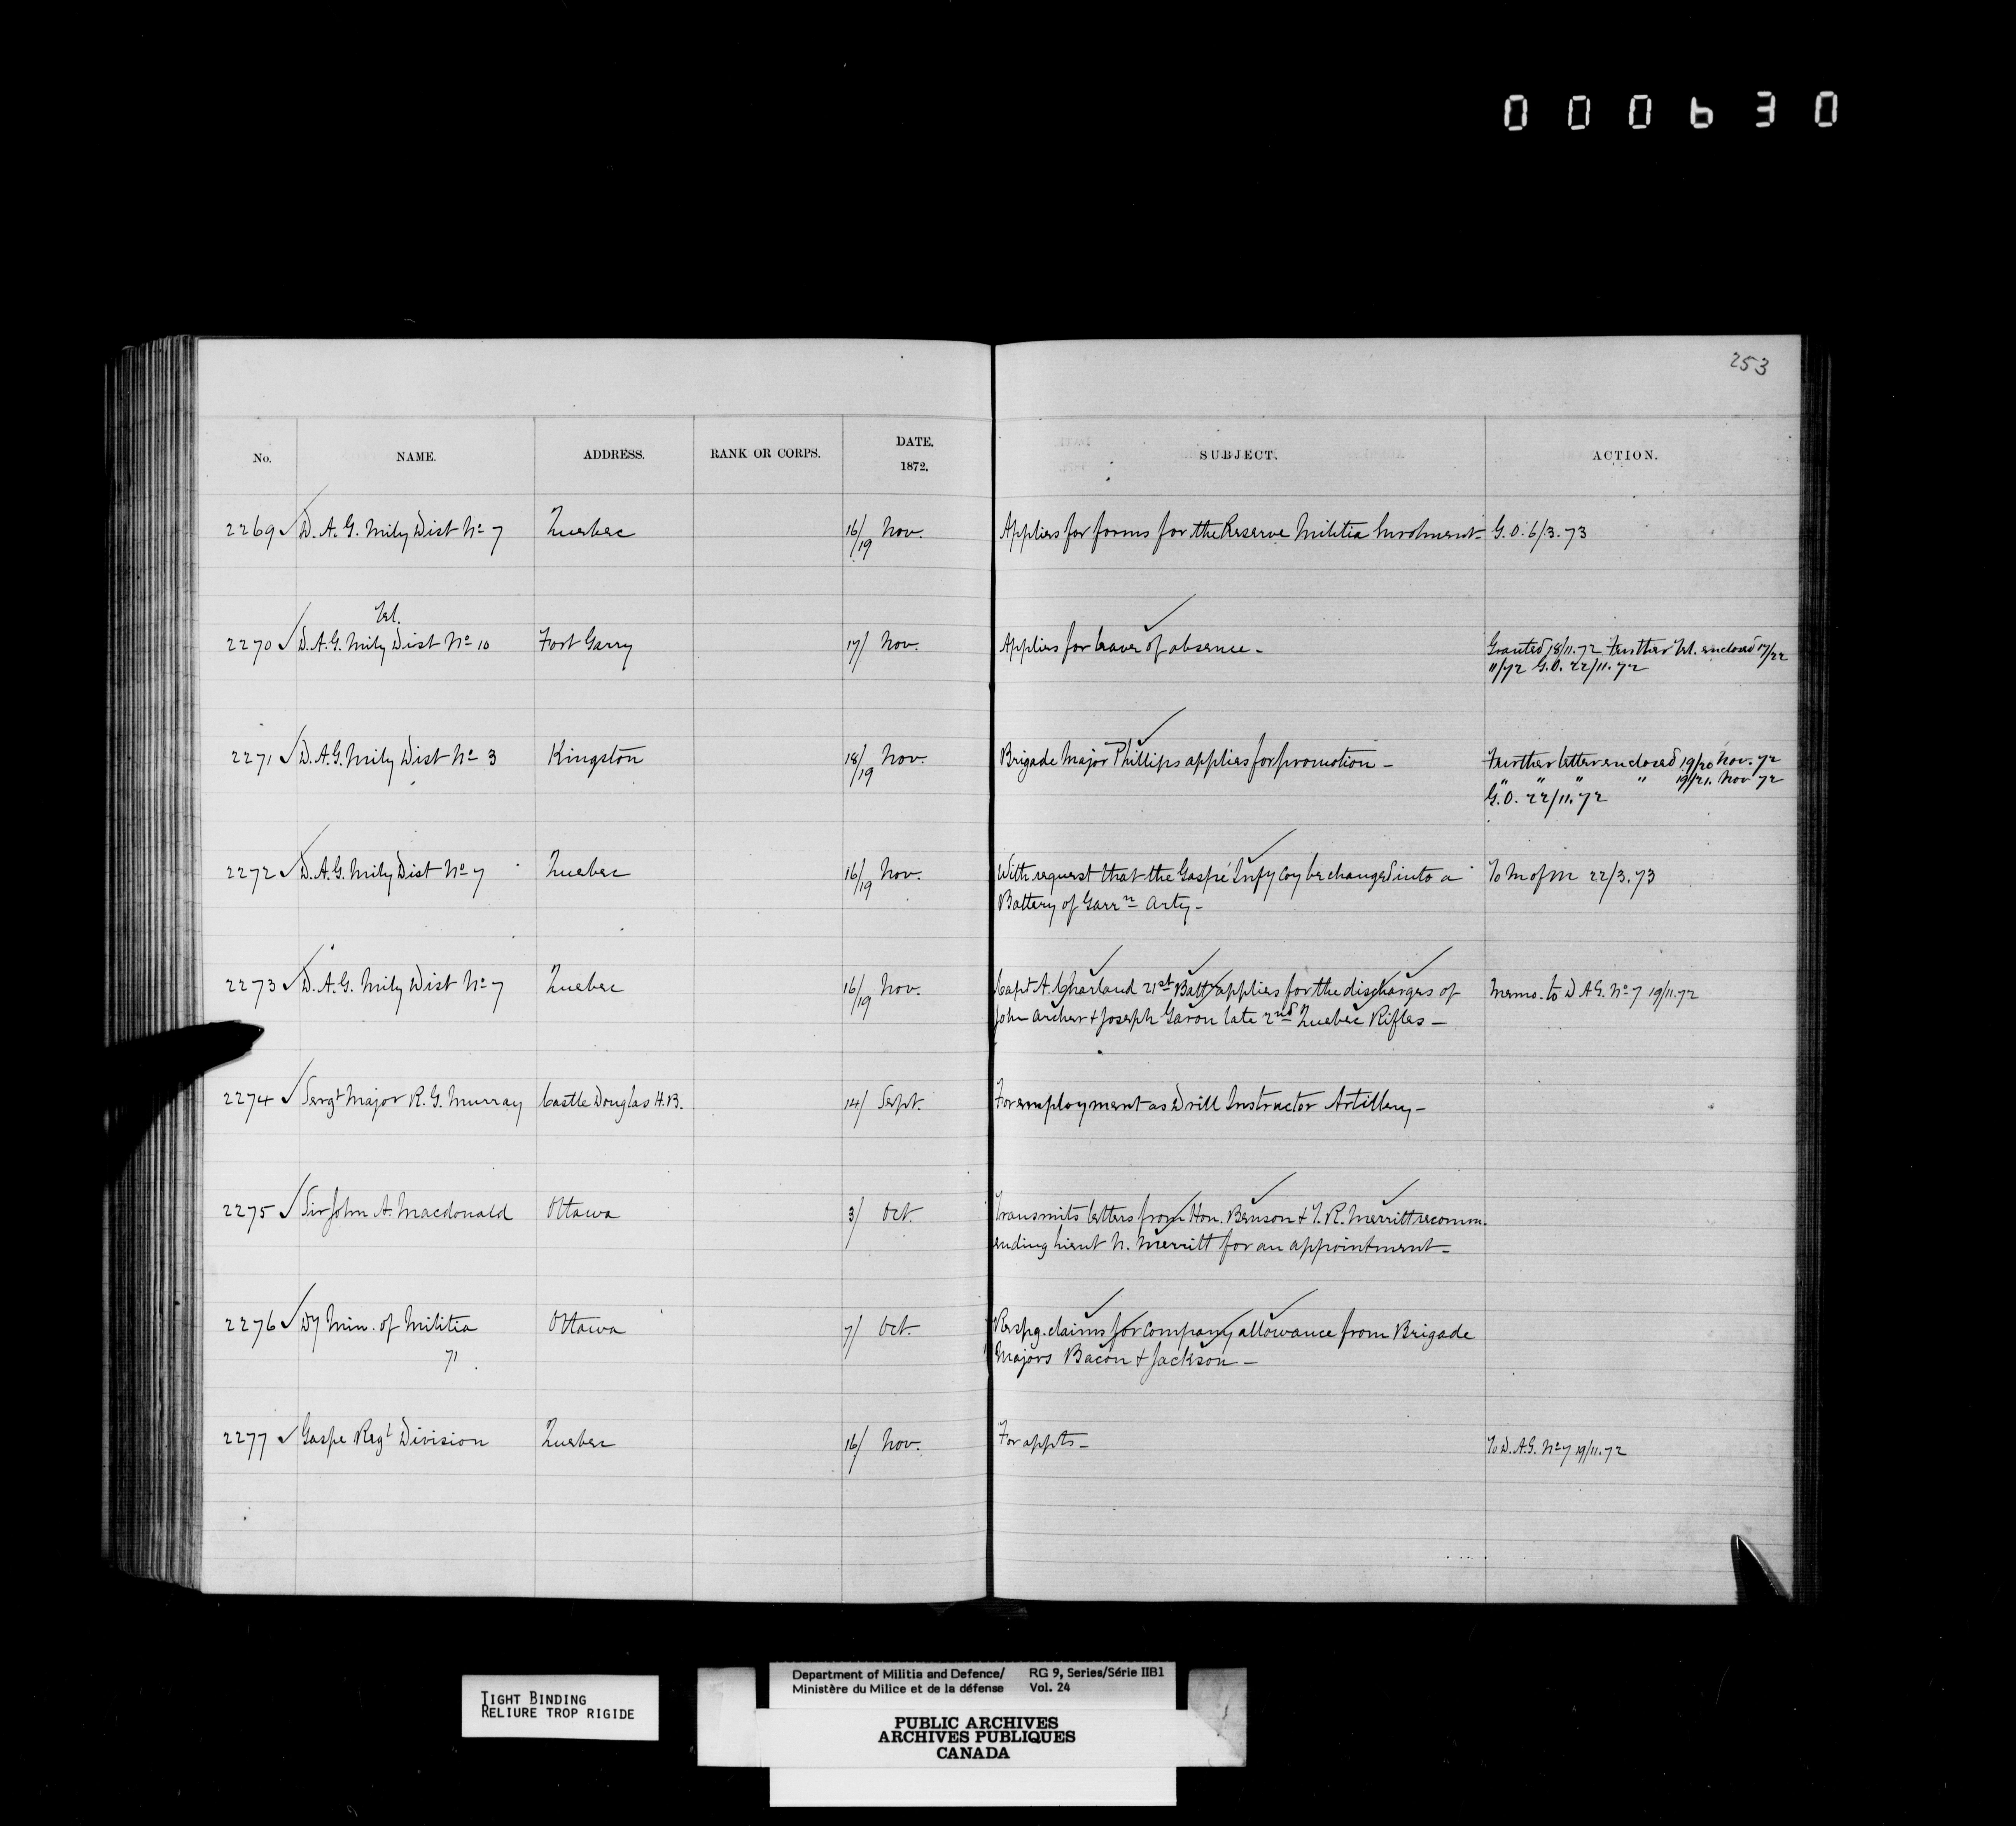 000630
253
No. NAME. ADDRESS. RANK OR CORPS. DATE. 1872. SUBJECT. ACTION.
2269 D. A. G. Mily Dist No 7 Quebec 16/19 Nov. Applies for forms for the Reserve Militia Enrolment - G. O. 6/3.73
Tel.
2270 D. A. G. Mily Dist No 10 Fort Garry 17/ Nov. Applies for leave of absence - Granted 18/11.72 Further Tel. enclosed 17/22
11/72 G.O. 22/11.72
2271 D. A. G. Mily Dist No 3 Kingston 18/19 Nov. Brigade Major Phillips applies for promotion - Further letter enclosed 19/20 Nov. 72
" " " " 19/21. Nov 72
G.O. 22/11.72
2272 D. A. G. Mily Dist No 7 Quebec 16/19 Nov. With request that the Gaspé Infy Coy be changed into a To M of M 22/3.73
Battery of Garrn Arty -
2273 D. A. G. Mily Dist No 7 Quebec 16/19 Nov. Capt A. Charland 21st Batt applies for the discharges of Memo. to D A G. No 7 19/11.72
John Archer + Joseph Garon late 2nd Quebec Rifles -
2274 Sergt Major R. G. Murray Castle Douglas N.B. 14/ Sept. For employment as Drill Instructor Artillery -
2275 Sir John A. Macdonald Ottawa 3/ Oct. Transmits letters from Hon. Benson + T. R. Merritt recomm-
ending Lieut N. Merritt for an appointment -
2276 Dy Min. of Militia Ottawa 7/ Oct. Respg. claims for company allowance from Brigade
71 Majors Bacon + Jackson -
2277 Gaspe Regt Division Quebec 16/ Nov. For appts - To D. A. G. No 7 19/11.72
TIGHT BINDING
RELIURE TROP RIGIDE
Department of Militia and Defence/ RG 9, Series/Série IIB1
Ministère du Milice et de la défense Vol. 24
PUBLIC ARCHIVES
ARCHIVES PUBLIQUES
CANADA